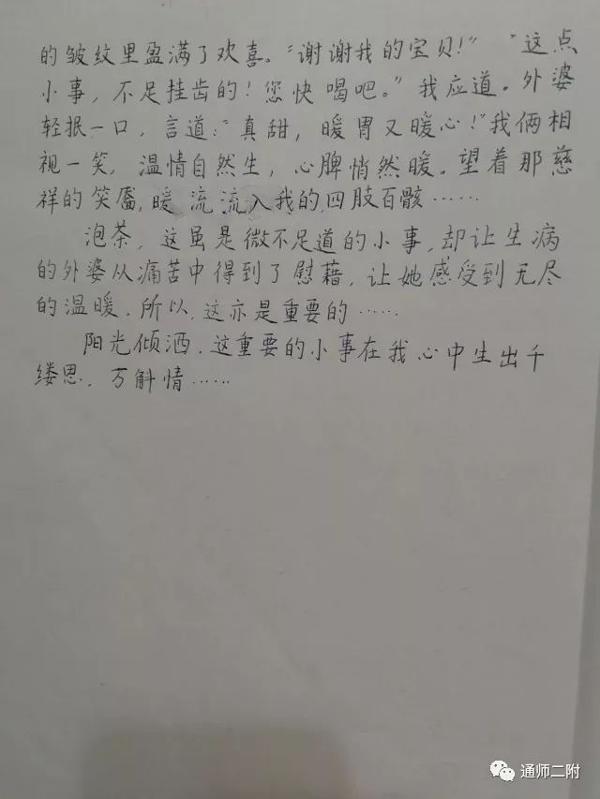 的皱纹里盈满了欢喜。“谢谢我的宝贝！”“这点
小事，不足挂齿的！您快喝吧。”我应道。外婆
轻抿一口，言道：“真甜，暖胃又暖心！”我俩相
视一笑，温情自然生，心脾悄然暖。望着那慈
祥的笑靥，暖流流入我的四肢百骸……
泡茶，这虽是微不足道的小事，却让生病
的外婆从痛苦中得到了慰藉，让她感受到无尽
的温暖．所以，这亦是重要的……
阳光倾洒．这重要的小事在我心中生出千
缕思．万斛情……
通师二附